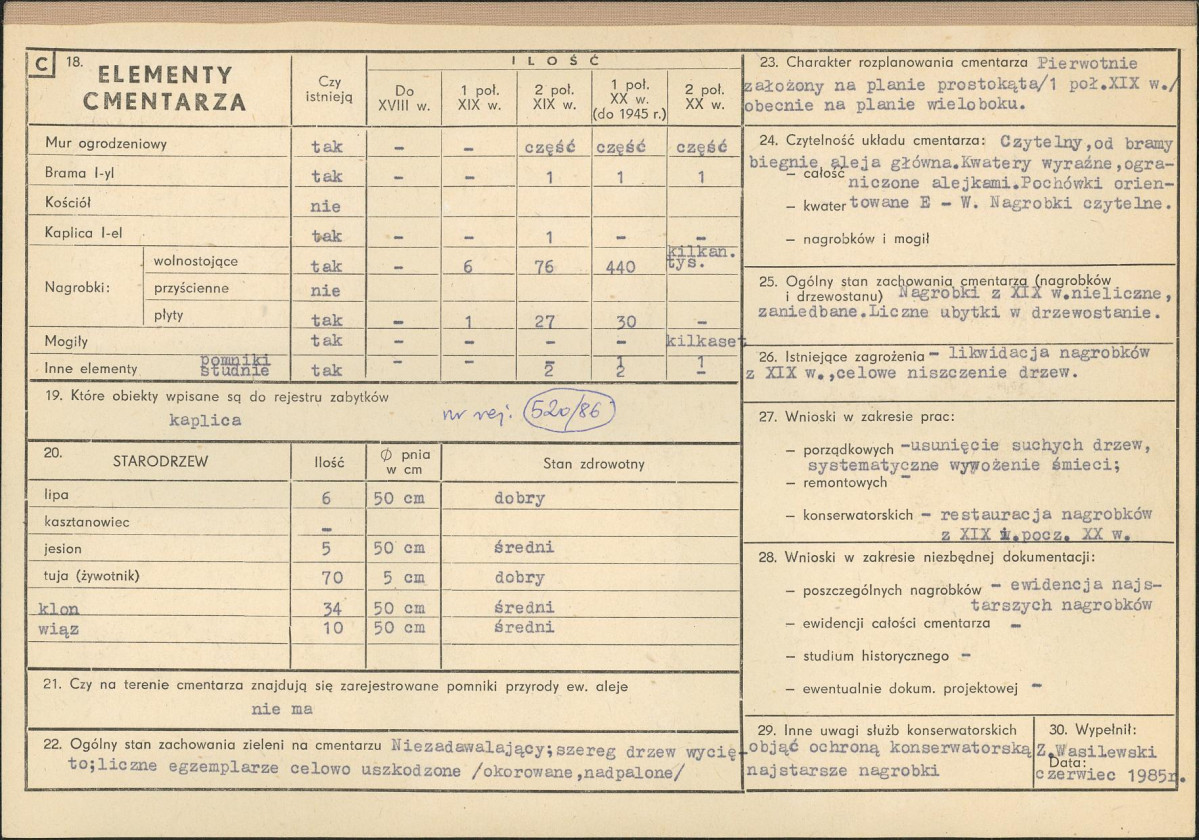 C 18. ELEMENTY CMENTARZA
Czy istnieją
ILOŚĆ
Do XVIII w.
1 poł. XIX w.
2 poł. XIX w.
1 poł. XX w. (do 1945 r.)
2 poł. XX w.
Mur ogrodzeniowy tak – – część część część
Brama I-yl tak – – 1 1 1
Kościół nie
Kaplica I-el tak – – 1 – –
Nagrobki:
wolnostojące tak – 6 76 440 kilkan. tys.
przyścienne nie
płyty tak – 1 27 30 –
Mogiły tak – – – – kilkaset
Inne elementy pomniki – – – 1 1
studnie tak 2 2 –
19. Które obiekty wpisane są do rejestru zabytków
kaplica nr rej. 520/86
20. STARODRZEW Ilość Ø pnia w cm Stan zdrowotny
lipa 6 50 cm dobry
kasztanowiec –
jesion 5 50 cm średni
tuja (żywotnik) 70 5 cm dobry
klon 34 50 cm średni
wiąz 10 50 cm średni
21. Czy na terenie cmentarza znajdują się zarejestrowane pomniki przyrody ew. aleje
nie ma
22. Ogólny stan zachowania zieleni na cmentarzu Niezadawalający;szereg drzew wycię-
to;liczne egzemplarze celowo uszkodzone /okorowane,nadpalone/
23. Charakter rozplanowania cmentarza Pierwotnie
założony na planie prostokąta/1 poł.XIX w./
obecnie na planie wieloboku.
24. Czytelność układu cmentarza: Czytelny,od bramy
biegnie aleja główna.Kwatery wyraźne,ogra-
– całość niczone alejkami.Pochówki orien-
– kwater towane E – W. Nagrobki czytelne.
– nagrobków i mogił
25. Ogólny stan zachowania cmentarza (nagrobków
i drzewostanu) Nagrobki z XIX w.nieliczne,
zaniedbane.Liczne ubytki w drzewostanie.
26. Istniejące zagrożenia – likwidacja nagrobków
z XIX w.,celowe niszczenie drzew.
27. Wnioski w zakresie prac:
– porządkowych –usunięcie suchych drzew,
systematyczne wywożenie śmieci;
– remontowych –
– konserwatorskich – restauracja nagrobków
z XIX i pocz. XX w.
28. Wnioski w zakresie niezbędnej dokumentacji:
– poszczególnych nagrobków – ewidencja najs-
tarszych nagrobków
– ewidencji całości cmentarza –
– studium historycznego –
– ewentualnie dokum. projektowej –
29. Inne uwagi służb konserwatorskich
objąć ochroną konserwatorską
najstarsze nagrobki
30. Wypełnił:
Z.Wasilewski
Data:
czerwiec 1985r.